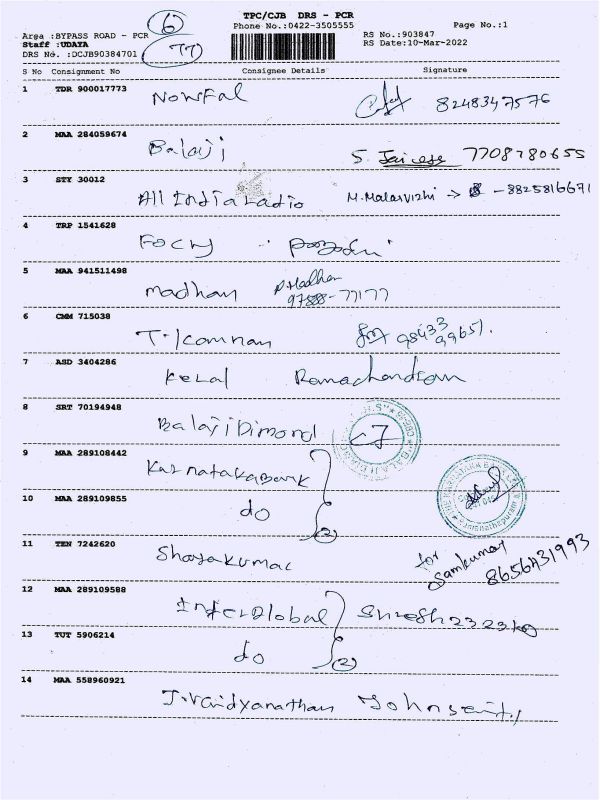 TPC/CJB DRS - PCR
6
Phone No.:0422-3505555
Page No.:1
Area :BYPASS ROAD - PCR
RS No.:903847
Staff :UDAYA
RS Date:10-Mar-2022
DRS No. :DCJB90384701
77
S No Consignment No Consignee Details Signature
1 TDR 900017773
Nowfal 8248347576
2 MAA 284059674
Balaji S. 7708780655
3 STY 30012
All India Radio M. Malarvizhi → - 8825816671
4 TRP 1541628
5 MAA 941511498
madhan P. Madhan
97888-77177
6 CMM 715038
T. Kannan 98433 99651.
7 ASD 3404286
Ramachandran
8 SRT 70194948
Balaji Dimond
9 MAA 289108442
Karnataka Bank
10 MAA 289109855
do (2)
11 TEN 7242620
for
Samkumar
8656431993
12 MAA 289109588
Inter Global
13 TUT 5906214
do (2)
14 MAA 558960921
J. Vaidyanathan